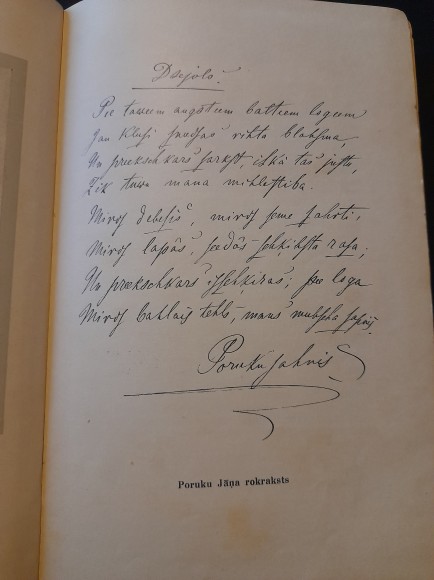 Dsejolis.
Pee taweem augsteem balteem logeem
Jau klusi smeijas rihta blahsma,
Un preekschkars sarkst, itkâ tas justu,
Zik tuwu mana mihlestiba.
Mirds debesis, mirds seme sahrti,
Mirds lapâs, seedôs schkihsta rasa;
Un preekschkars ischkiras; pee loga
Mirds baltais tehls, mans muhscha sapnis
Poruku Jahnis
Poruku Jāņa rokraksts